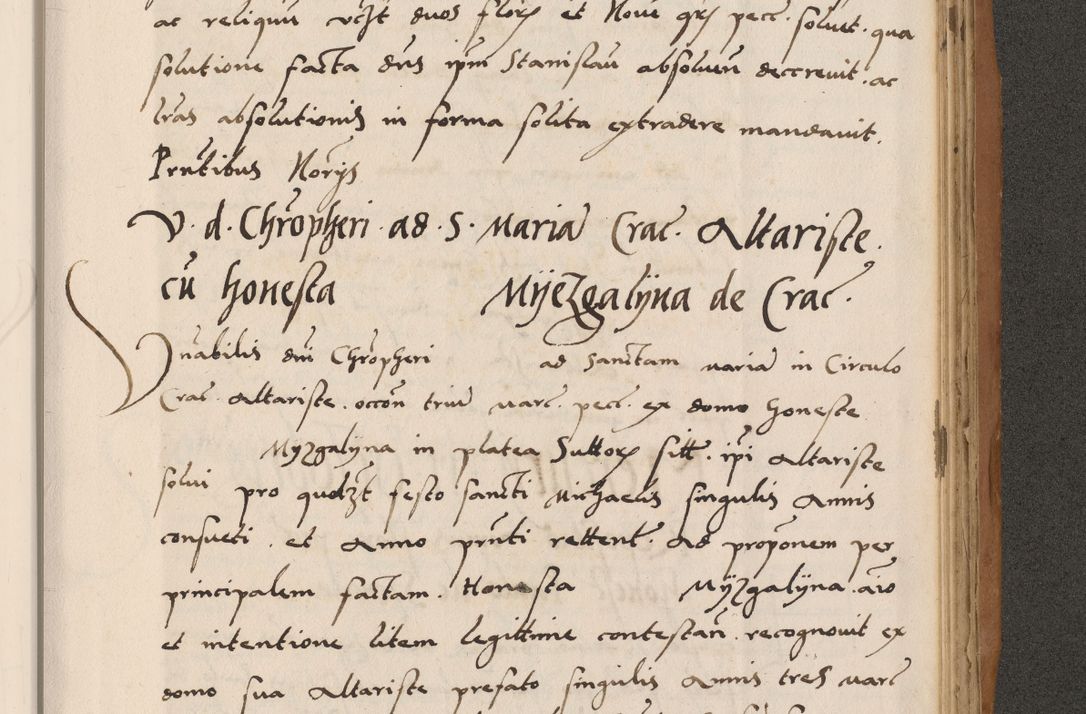 ac reliquu vczt duos floren et Novem grs pecc. solvit. qua
solutione facta dns ipm Stanislau absoluen decrevit. ac
lras absolutionis in forma solita extradere mandavit.
Prntibus Norijs
V. d. Chropheri. ad. S. Maria Crac. Altariste.
cu honesta Mijezgalijna de Crac.
Vnabilis dni Chropheri ad sanctam maria in Circulo
Crac. Altariste. occon triu marc. pecc. ex domo honeste
Myzgalijna in platea Suttor sitt. ipi Altariste
solui pro quolzt festo sancti Michaelis singulis Annis
consueti. et Anno prnti rettent. Ad proponem per
principalem factam. Honesta Mijzgalijna. aio
et intentione litem legittime contestan. recognovit ex
domo sua Altariste prefato singulis Annis tres marc